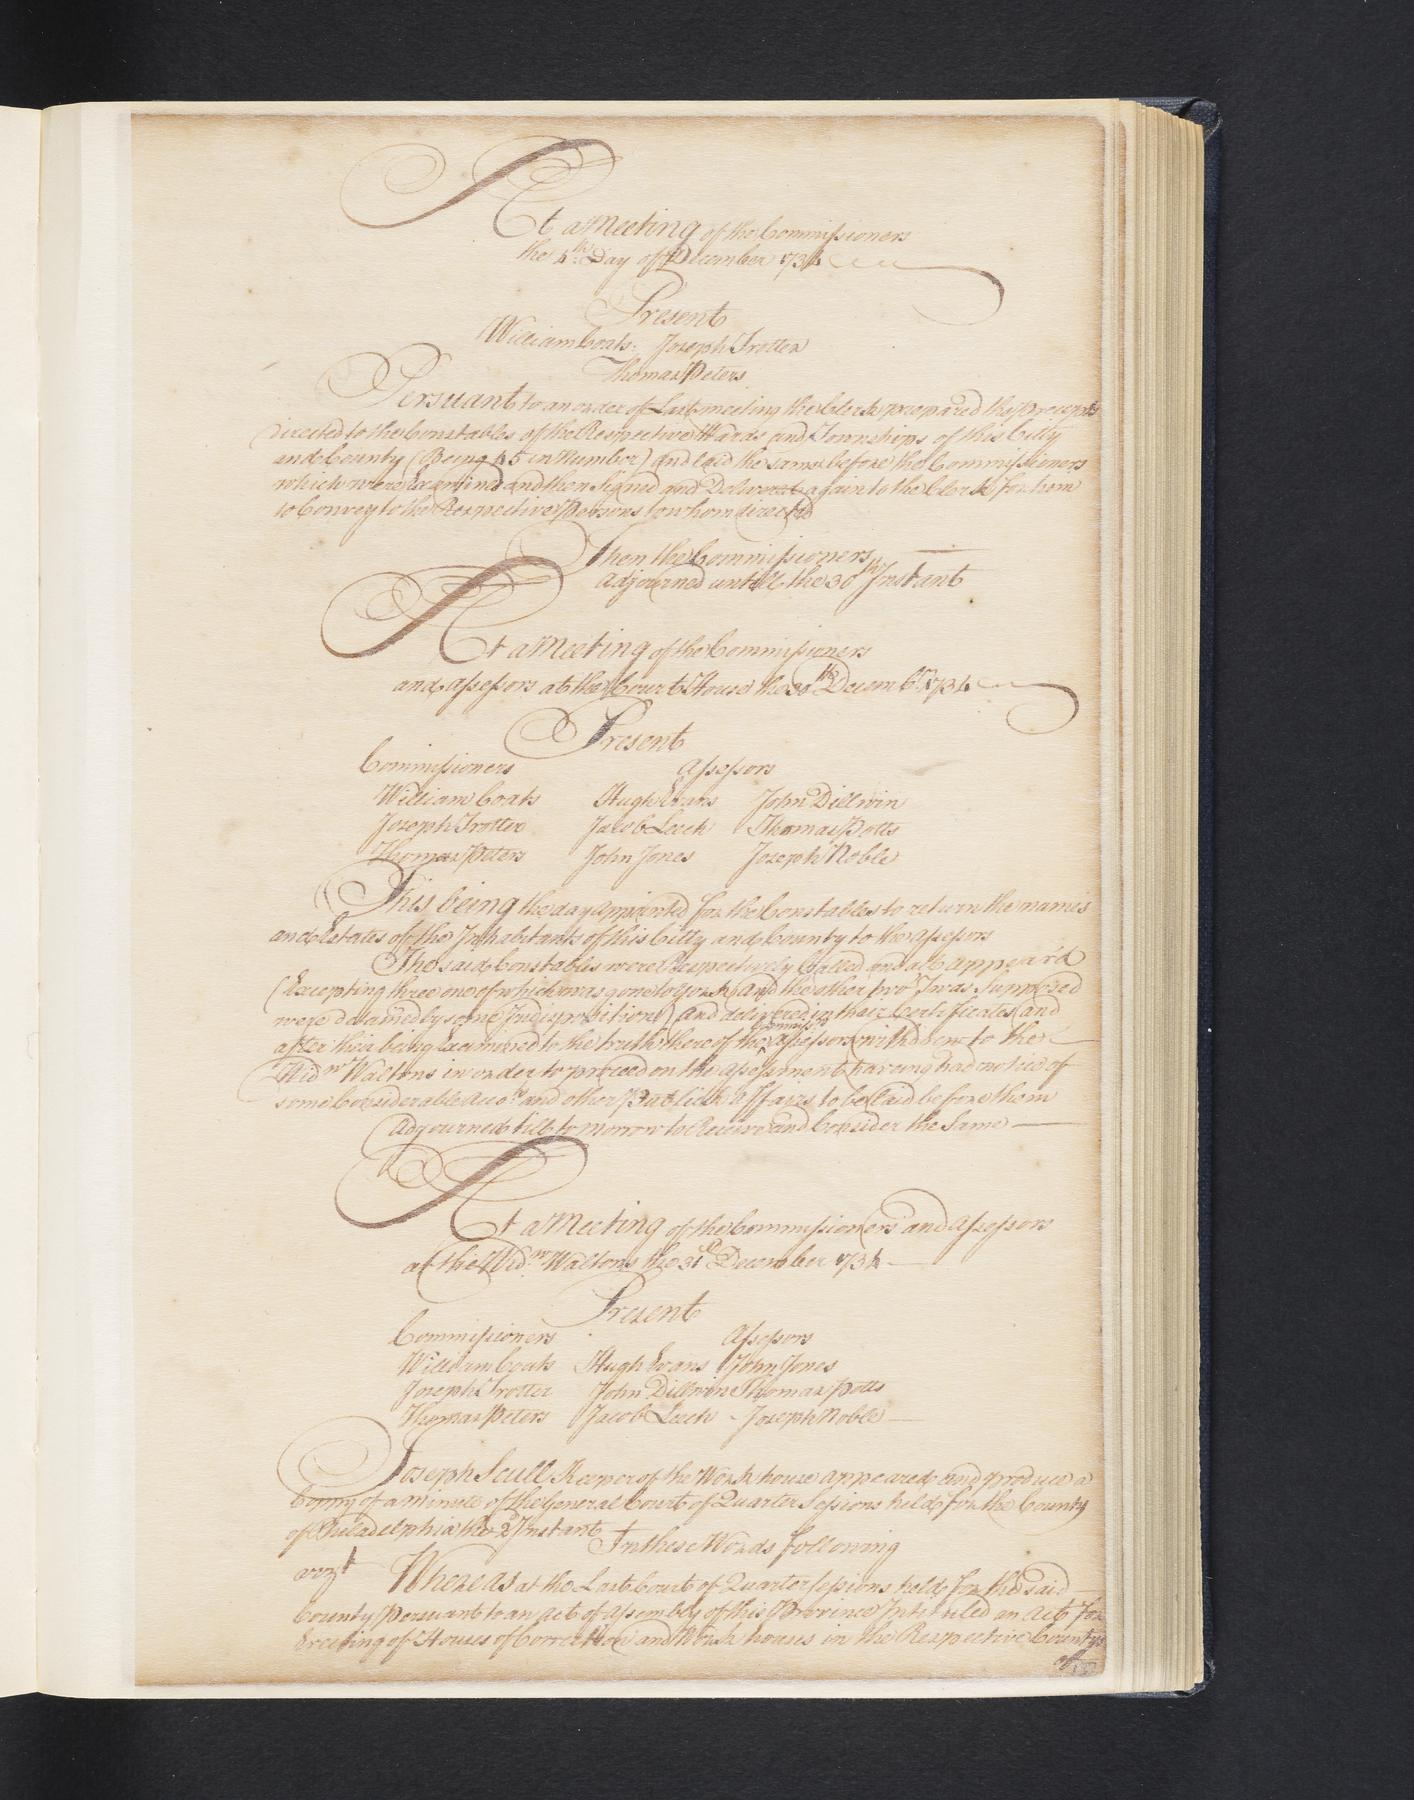 At a Meeting of the Commissioners
the 4th Day of December 1734
Present
William Coats: Joseph Trotter
Thomas Peters
Persuant to an order of Last meeting the Clerk prepared the precepts
directed to the Constables of the Respective Wards and Townships of this Citty
and County (Being 45 in Number) and laid the same before the Commissioners
which were Examined and then Signed and Delivered again to the Clerk for him
to Convey to the Respective Persons to whom directed
Then the Commissioners
adjourned untill the 30th Instant
At a Meeting of the Commissioners
and Assessors at the Court House the 30th Decembr. 1734
Present
Commissioners Assessors
William Coats Hugh Evans John Dillwin
Joseph Trotter Jacob Leech Thomas Potts
Thomas Peters John Jones Joseph Noble
This being the day Appointed for the Constables to return the names
and Estates of the Inhabitants of this Citty and County to the Assessors
The said Constables were Respectively Called and all appear'd
(Excepting three one of which was gone to York and the other two Twas Supposed
were detained by some Indisposition) and delivered in their Certificates and
after their being Examined to the truth thereof the Commissrs Assessors withdrew to the
Widw Waltons in order to proceed on the Assessment having had notice of
some Considerable Accots and other Publick Affairs to be laid before them
Adjourned till to morrow to Receive and Consider the Same
At a Meeting of the Commissioners and Assessors
at the Widw Waltons the 31st December 1734
Present
Commissioners Assessors
William Coats Hugh Evans John Jones
Joseph Trotter John Dillwin Thomas Potts
Thomas Peters Jacob Leech - Joseph Noble
Joseph Scull Keeper of the Work house appeared and produce a
Coppy of a minute of the General Court of Quarter Sessions held for the County
of Philadelphia the 2d Instant In these Words following
vizt Whereas at the Last Court of Quarter sessions held for the said
County Persuant to an act of Assembly of this Province Intituled an Act for
Erecting of Houses of Correction and Work houses in the Respective Countys
of